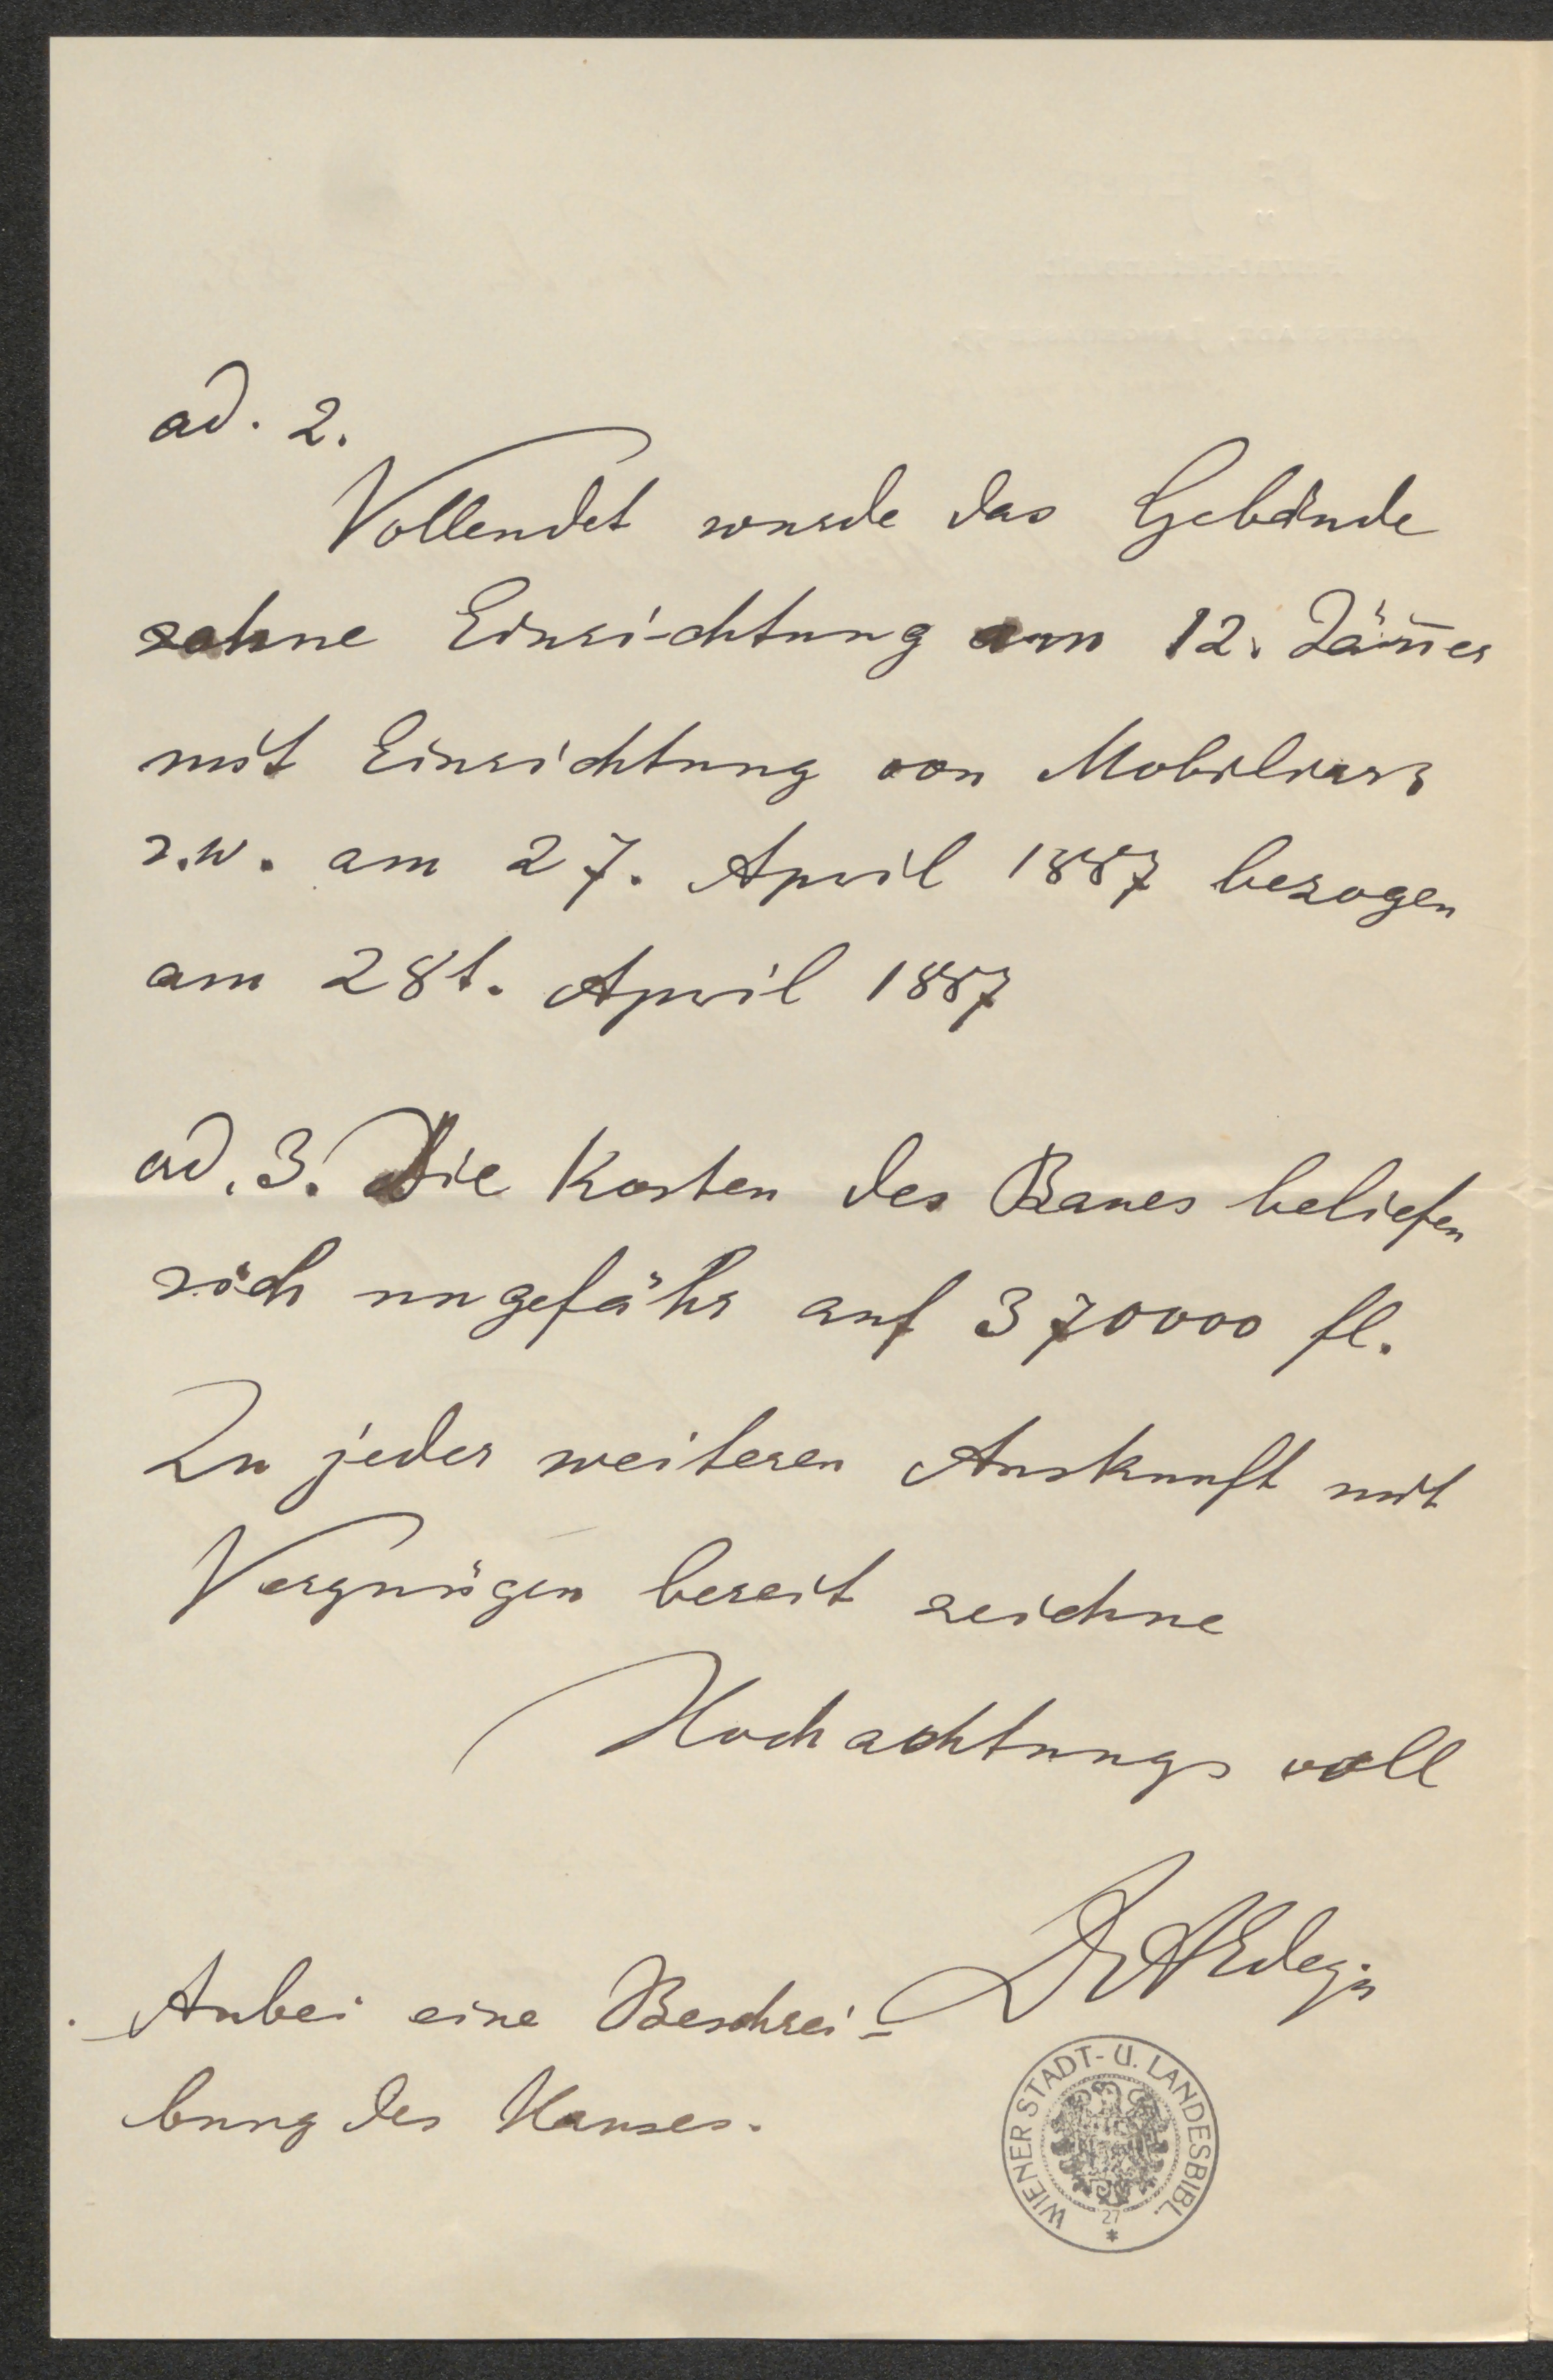 ad. 2.
Vollendet wurde das Gebäude
ohne Einrichtung am 12. Jäner
mit Einrichtung von Mobiliar
s.w. am 27. April 1887 bezogen
am 28t. April 1887
ad. 3. Die Kosten des Baues beliefen
sich ungefähr auf 370000 fl.
Zu jeder weiteren Auskunft mit
Vergnügen bereit zeichne
Hochachtungs voll
Anbei eine Beschrei-
bung des Hauses.
WIENER STADT- U. LANDESBIBL.
27